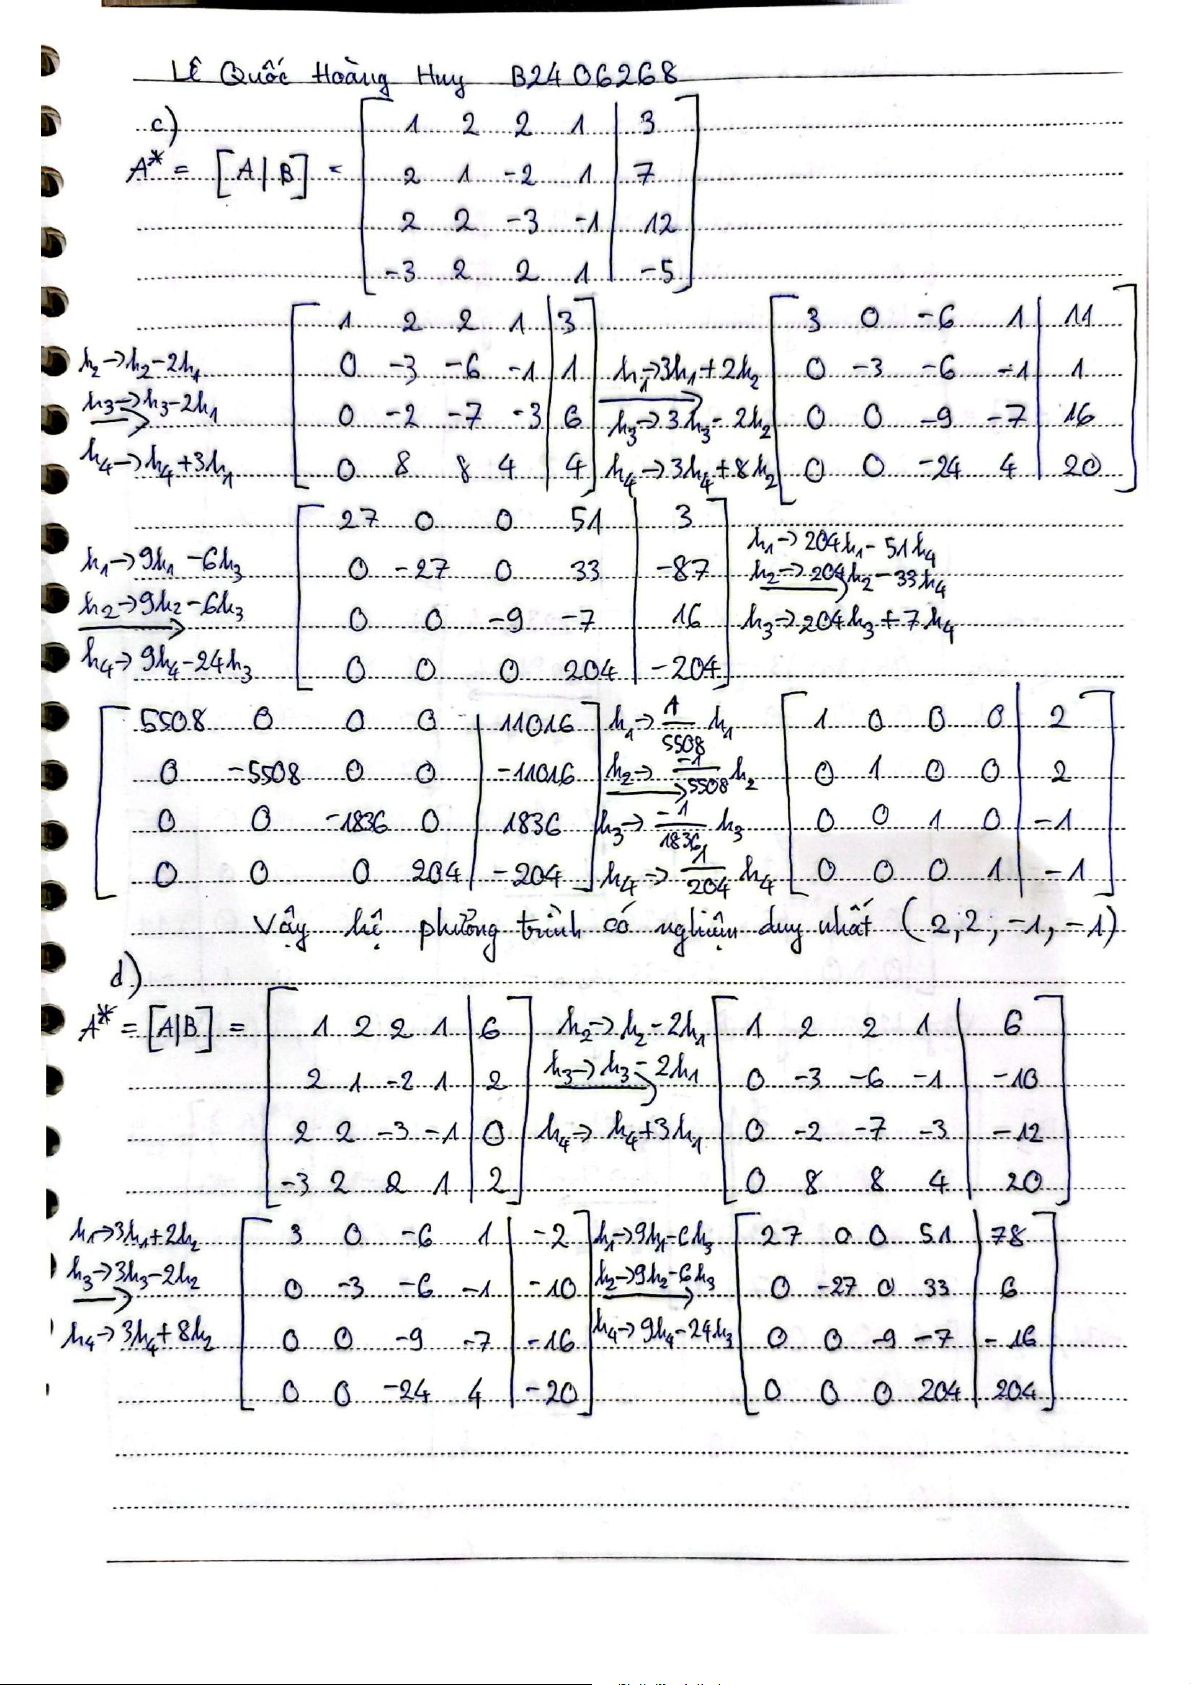 Lê Quốc Hoàng Huy B2406268
c)
A* = [A | B] =
1 2 2 1 | 3
2 1 -2 1 | 7
2 2 -3 -1 | 12
-3 2 2 1 | -5
h₂→h₂-2h₁
h₃→h₃-2h₁
h₄→h₄+3h₁
1 2 2 1 | 3
0 -3 -6 -1 | 1
0 -2 -7 -3 | 6
0 8 8 4 | 4
h₁→3h₁+2h₂
h₃→3h₃-2h₂
h₄→3h₄+8h₂
3 0 -6 1 | 11
0 -3 -6 -1 | 1
0 0 -9 -7 | 16
0 0 -24 4 | 20
h₁→9h₁-6h₃
h₂→9h₂-6h₃
h₄→9h₄-24h₃
27 0 0 51 | 3
0 -27 0 33 | -87
0 0 -9 -7 | 16
0 0 0 204 | -204
h₁→204h₁-51h₄
h₂→204h₂-33h₄
h₃→204h₃+7h₄
5508 0 0 0 | 11016
0 -5508 0 0 | -11016
0 0 -1836 0 | 1836
0 0 0 204 | -204
h₁→ 1/5508 h₁
h₂→ -1/5508 h₂
h₃→ -1/1836 h₃
h₄→ 1/204 h₄
1 0 0 0 | 2
0 1 0 0 | 2
0 0 1 0 | -1
0 0 0 1 | -1
Vậy hệ phương trình có nghiệm duy nhất (2, 2; -1, -1)
d)
A* = [A|B] =
1 2 2 1 | 6
2 1 -2 1 | 2
2 2 -3 -1 | 0
-3 2 2 1 | 2
h₂→h₂-2h₁
h₃→h₃-2h₁
h₄→h₄+3h₁
1 2 2 1 | 6
0 -3 -6 -1 | -10
0 -2 -7 -3 | -12
0 8 8 4 | 20
h₁→3h₁+2h₂
h₃→3h₃-2h₂
h₄→3h₄+8h₂
3 0 -6 1 | -2
0 -3 -6 -1 | -10
0 0 -9 -7 | -16
0 0 -24 4 | -20
h₁→9h₁-6h₃
h₂→9h₂-6h₃
h₄→9h₄-24h₃
27 0 0 51 | 78
0 -27 0 33 | 6
0 0 -9 -7 | -16
0 0 0 204 | 204